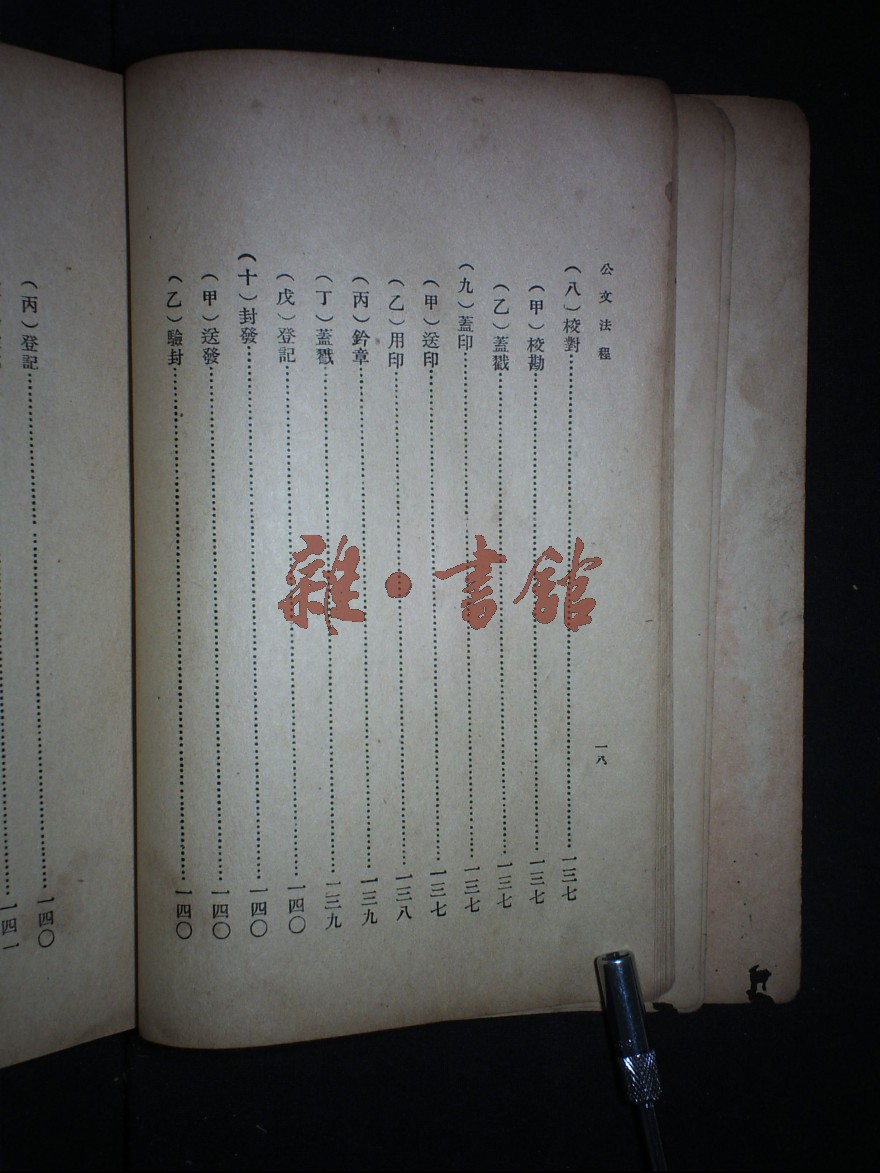 公文法程
一八
（八）校對……一三七
（甲）校勘……一三七
（乙）蓋戳……一三七
（九）蓋印……一三七
（甲）送印……一三七
（乙）用印……一三八
（丙）鈐章……一三九
（丁）蓋戳……一三九
（戊）登記……一四〇
（十）封發……一四〇
（甲）送發……一四〇
（乙）驗封……一四〇
（丙）登記……一四〇
一四一
雜·書館